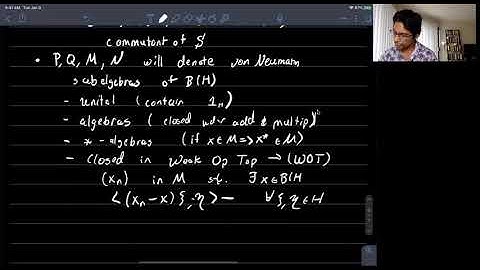 9:41 AM Tue Jan 5
commutant of S
• P, Q, M, N will denote von Neumann
subalgebras of B(H)
- unital (contain 1_H)
- algebras (closed wdr add & multip)
- *-algebras (if x∈M => x* ∈ M)
- closed in Weak Op Top → (WOT)
(x_n) in M s.t. ∃ x∈B(H)
<(x_n-x)ξ, η> — ∀ ξ, η ∈ H